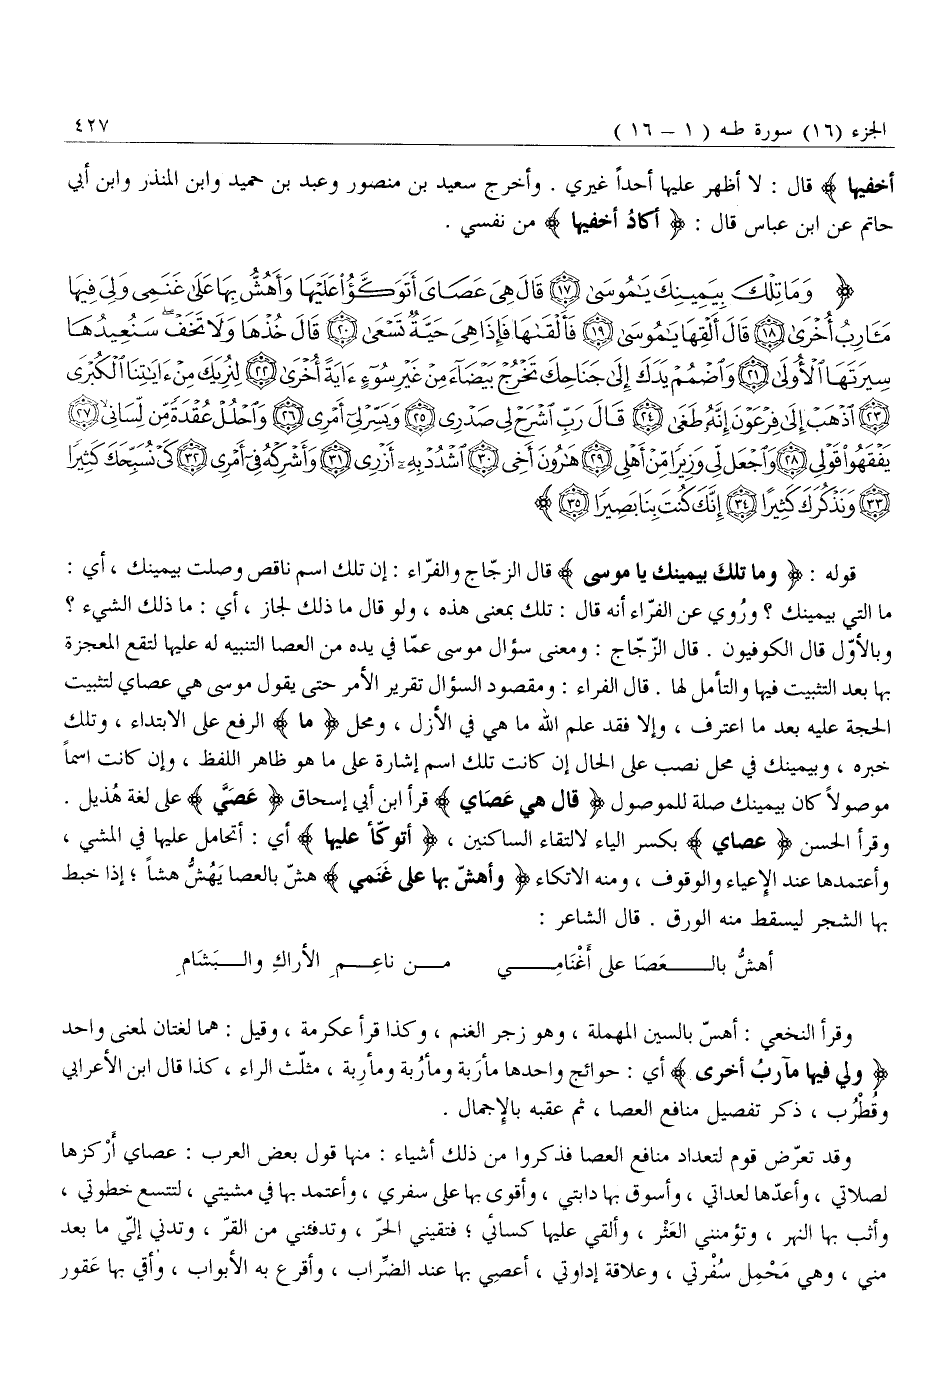 الجزء (١٦) سورة طـه ( ١ - ١٦ ) ٤٢٧
أخفيها ﴾ قال : لا أظهر عليها أحداً غيري . وأخرج سعيد بن منصور وعبد بن حميد وابن المنذر وابن أبي
حاتم عن ابن عباس قال : ﴿ أكادُ أخفيها ﴾ من نفسي .
﴿ وَمَا تِلْكَ بِيَمِينِكَ يَٰمُوسَىٰ ﴿١٧﴾ قَالَ هِىَ عَصَاىَ أَتَوَكَّؤُا۟ عَلَيْهَا وَأَهُشُّ بِهَا عَلَىٰ غَنَمِى وَلِىَ فِيهَا
مَـَٔارِبُ أُخْرَىٰ ﴿١٨﴾ قَالَ أَلْقِهَا يَٰمُوسَىٰ ﴿١٩﴾ فَأَلْقَىٰهَا فَإِذَا هِىَ حَيَّةٌ تَسْعَىٰ ﴿٢٠﴾ قَالَ خُذْهَا وَلَا تَخَفْ ۖ سَنُعِيدُهَا
سِيرَتَهَا ٱلْأُولَىٰ ﴿٢١﴾ وَٱضْمُمْ يَدَكَ إِلَىٰ جَنَاحِكَ تَخْرُجْ بَيْضَآءَ مِنْ غَيْرِ سُوٓءٍ ءَايَةً أُخْرَىٰ ﴿٢٢﴾ لِنُرِيَكَ مِنْ ءَايَٰتِنَا ٱلْكُبْرَى
﴿٢٣﴾ ٱذْهَبْ إِلَىٰ فِرْعَوْنَ إِنَّهُۥ طَغَىٰ ﴿٢٤﴾ قَالَ رَبِّ ٱشْرَحْ لِى صَدْرِى ﴿٢٥﴾ وَيَسِّرْ لِىٓ أَمْرِى ﴿٢٦﴾ وَٱحْلُلْ عُقْدَةً مِّن لِّسَانِى ﴿٢٧﴾
يَفْقَهُوا۟ قَوْلِى ﴿٢٨﴾ وَٱجْعَل لِّى وَزِيرًا مِّنْ أَهْلِى ﴿٢٩﴾ هَٰرُونَ أَخِى ﴿٣٠﴾ ٱشْدُدْ بِهِۦٓ أَزْرِى ﴿٣١﴾ وَأَشْرِكْهُ فِىٓ أَمْرِى ﴿٣٢﴾ كَىْ نُسَبِّحَكَ كَثِيرًا
﴿٣٣﴾ وَنَذْكُرَكَ كَثِيرًا ﴿٣٤﴾ إِنَّكَ كُنتَ بِنَا بَصِيرًا ﴿٣٥﴾ ﴾
قوله : ﴿ وما تلكَ بيمينك يا موسى ﴾ قال الزجّاج والفرّاء : إن تلك اسم ناقص وصلت بيمينك ، أي :
ما التي بيمينك ؟ ورُوي عن الفرّاء أنه قال : تلك بمعنى هذه ، ولو قال ما ذلك لجاز ، أي : ما ذلك الشيء ؟
وبالأوّل قال الكوفيون . قال الزّجاج : ومعنى سؤال موسى عمّا في يده من العصا التنبيه له عليها لتقع المعجزة
بها بعد التثبيت فيها والتأمل لها . قال الفراء : ومقصود السؤال تقرير الأمر حتى يقول موسى هي عصاي لتثبيت
الحجة عليه بعد ما اعترف ، وإلا فقد علم الله ما هي في الأزل ، ومحل ﴿ ما ﴾ الرفع على الابتداء ، وتلك
خبره ، وبيمينك في محل نصب على الحال إن كانت تلك اسم إشارة على ما هو ظاهر اللفظ ، وإن كانت اسماً
موصولاً كان بيمينك صلة للموصول ﴿ قال هي عَصَاي ﴾ قرأ ابن أبي إسحاق ﴿ عَصَيَّ ﴾ على لغة هُذيل .
وقرأ الحسن ﴿ عصاي ﴾ بكسر الياء لالتقاء الساكنين ، ﴿ أتوكّأ عليها ﴾ أي : أتحامل عليها في المشي ،
وأعتمدها عند الإعياء والوقوف ، ومنه الاتكاء ﴿ وأهشّ بها على غَنَمي ﴾ هشّ بالعصا يَهُشُّ هشاً ؛ إذا خبط
بها الشجر ليسقط منه الورق . قال الشاعر :
أهشُّ بالـــعَصَا على أَغْنَامِـــي مـــن ناعِـــمِ الأراكِ والـــبَشَامِ
وقرأ النخعي : أهسّ بالسين المهملة ، وهو زجر الغنم ، وكذا قرأ عكرمة ، وقيل : هما لغتان لمعنى واحد
﴿ ولي فيها مآربُ أخرى ﴾ أي : حوائج واحدها مأرَبة ومأرُبة ومأرِبة ، مثلّث الراء ، كذا قال ابن الأعرابي
وقُطْرُب ، ذكر تفصيل منافع العصا ، ثم عقبه بالإجمال .
وقد تعرّض قوم لتعداد منافع العصا فذكروا من ذلك أشياء : منها قول بعض العرب : عصاي أَرْكزها
لصلاتي ، وأعدّها لعداتي ، وأسوق بها دابتي ، وأقوى بها على سفري ، وأعتمد بها في مشيتي ، لتتسع خطوتي ،
وأثب بها النهر ، وتؤمنني العَثْر ، وألقي عليها كسائي ؛ فتقيني الحرّ ، وتدفئني من القرّ ، وتدني إليّ ما بعد
مني ، وهي مَحْمِل سُفْرتي ، وعلاقة إداوتي ، أعصي بها عند الضِّراب ، وأقرع به الأبواب ، وأقي بها عَقور